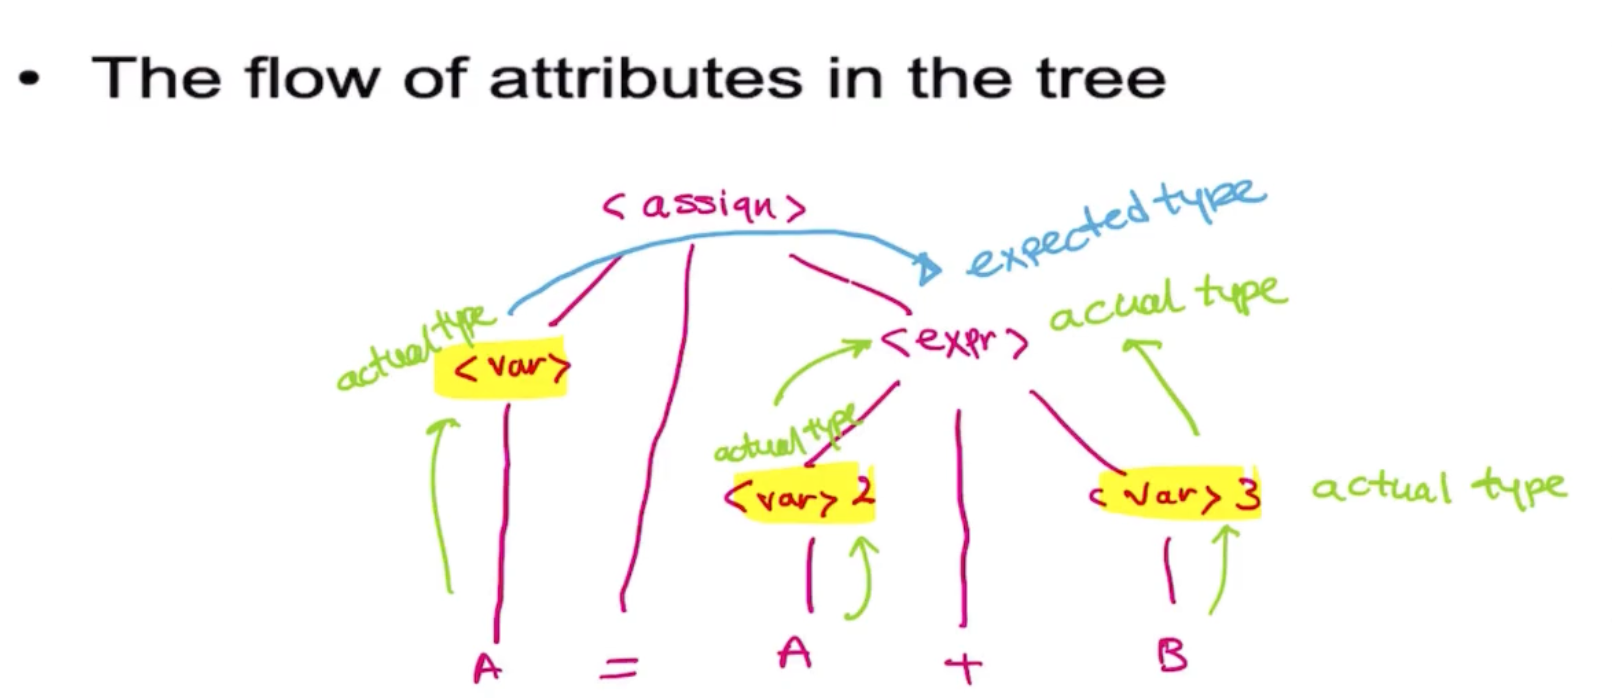 • The flow of attributes in the tree
<assign>
expected type
actual type
<var>
<expr>
acual type
actual type
<var> 2
<var> 3
actual type
A = A + B